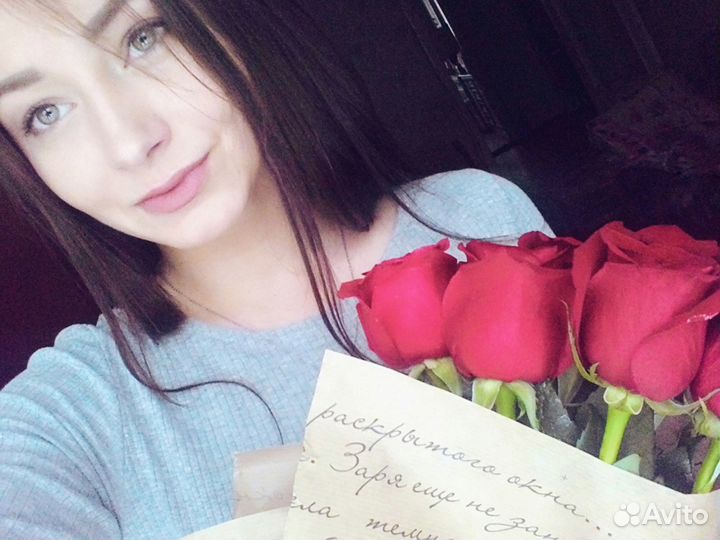 раскрытого окна...
Заря еще не зан
ела темн
Avito